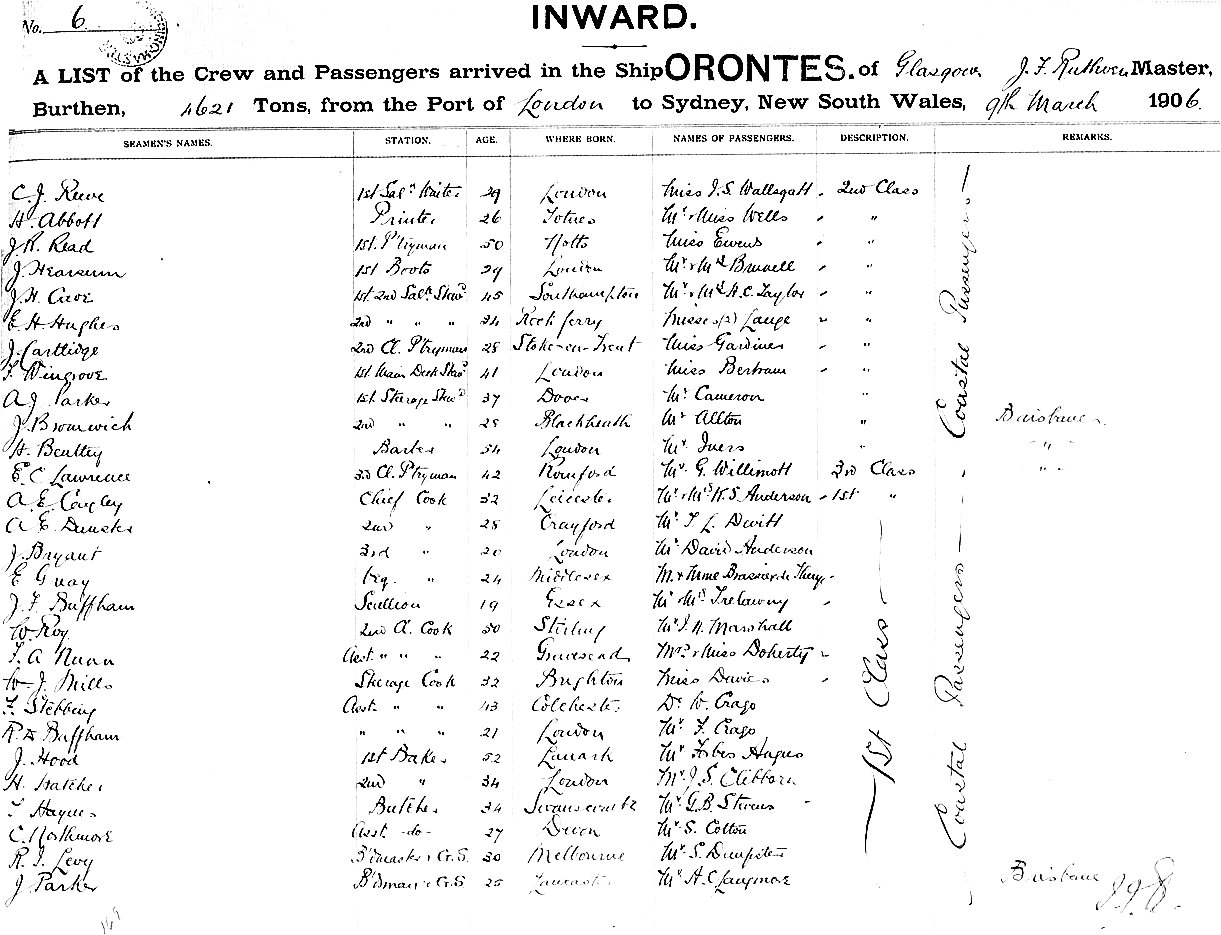 No. 6
INWARD.
A LIST of the Crew and Passengers arrived in the Ship ORONTES. of Glasgow J. F. Ruthven Master,
Burthen, 4621 Tons, from the Port of London to Sydney, New South Wales, 9th March 1906
SEAMEN'S NAMES. STATION. AGE. WHERE BORN. NAMES OF PASSENGERS. DESCRIPTION. REMARKS.
C. J. Reeve 1st Saln Waiter 29 London Miss J. S. Wallsgatt 2nd Class
H. Abbott Printer 26 Totnes Mr & Miss Wells "
J. R. Read 1st. P'tryman 50 Notts Miss Ewens "
J. Hearsum 1st Boots 29 London Mr & Mrs "
J. H. Cave 1st 2nd Saln Stewd 45 Southampton Mr & Mrs H. C. Taylor "
E H Hughes 2nd " " " 34 Rock ferry Misses (2) Lange "
J. Cartlidge 2nd Cl. Ptryman 28 Stoke-on-Trent Miss Gardiner "
F. Wingrove 1st Main Deck Stewd 41 London Miss Bertram "
A. J. Parker 1st Steerage Stewd 37 Dover Mr Cameron
J. Bromwich 2nd " " 28 Blackheath Mr Allton " Brisbane
H. Benttey Barber 54 London Mr " " "
E. C Lawrence 3rd Cl. Ptryman 42 Romford Mr G. Willimott 3rd Class " "
A. E. Chief Cook 32 Leicester Mr & Mrs K. S. Anderson 1st "
A. E. 2nd " 28 Crayford Mr T. L. Devitt
J. Bryant 3rd " 20 London Mr David Anderson
E Guay Veg. " 24 Middlesex M. & Mme Brassier de Thuy
J. F. Buffham Scullion 19 Essex Mr Mrs Trelawny
W. Roy 2nd Cl. Cook 50 Stirling Mr J. H. Marshall
F. A Nunn Asst. " " " 22 Gravesend Mrs & Miss Doherty
W. J. Mills Steerage Cook 32 Brighton Miss Davies
F. Stebbing Asst. " " 43 Colchester Dr W. Crago
R. Buffham " " " 21 London Mr F. Crago
J. Hood 1st Baker 52 Lanark Mr Forbes Angus
H. Hatcher 2nd " 34 London Mr J. S. Clibborn
T Haynes Butcher 34 Mr G. B. Stevens
C. Northmore Asst -do- 27 Devon Mr S. Cotton
R. J. Levy B'dmaster & G.S. 30 Melbourne Mr S. Dempster
J Parker B'dman & G.S 25 Lancaster Mr A. C. Langmore Brisbane
Coastal Passengers
Coastal Passengers
1st Class
169